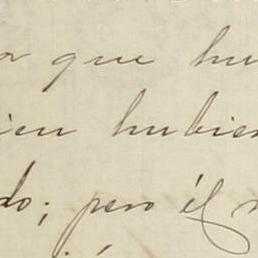 que hu
ien hubie
do; pero él